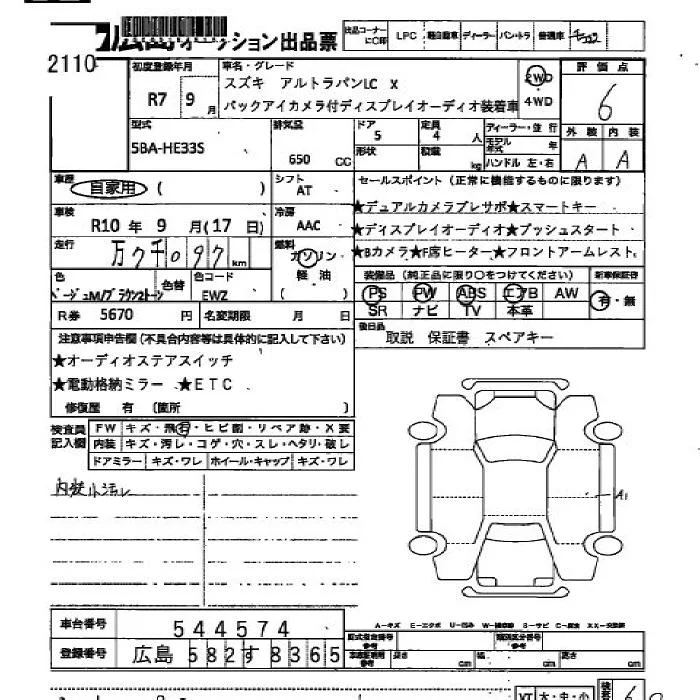 広島オークション出品票
出品コーナーに○印 LPC 軽自動車 ディーラー バン・トラ 普通車
2110
初度登録年月 車名・グレード 評価点
R7 9 月
スズキ アルトラパンLC X
バックアイカメラ付ディスプレイオーディオ装着車
2WD
4WD
6
型式 排気量 ドア 定員 ディーラー・並行 外装 内装
5BA-HE33S 650 CC 5 4 人
形状 積載 kg モデル年式 年
ハンドル 左・右
A A
車歴 自家用 ( ) シフト AT
セールスポイント (正常に機能するものに限ります)
車検 R10 年 9 月(17 日) 冷房 AAC
★デュアルカメラブレサポ★スマートキー
★ディスプレイオーディオ★プッシュスタート
★Bカメラ★F席ヒーター★フロントアームレスト
走行 万 千097 km 燃料 ガソリン
軽油
( )
色 色替 色コード
ベージュM/ブラウン2トーン EWZ
装備品 (純正品に限り○をつけてください) 新車保証書
PS PW ABS エアB AW 有・無
SR ナビ TV 本革
R券 5670 円 名変期限 月 日
後日品 取説 保証書 スペアキー
注意事項申告欄(不具合内容等は具体的に記入して下さい)
★オーディオステアスイッチ
★電動格納ミラー ★ETC
修復歴 有 (箇所 )
検査員記入欄 FW キズ・飛石・ヒビ割・リペア跡・X要
内装 キズ・汚レ・コゲ・穴・スレ・ヘタリ・破レ
ドアミラー キズ・ワレ ホイール・キャップ キズ・ワレ
内装小汚レ
A1
A-キズ E-エクボ U-凹み W-補修跡 S-サビ C-腐食 XX-交換済
車台番号 544574
型式指定番号 類別区分番号
登録番号 広島 582す8365
長さ cm 幅 cm 高さ cm
大・中・小